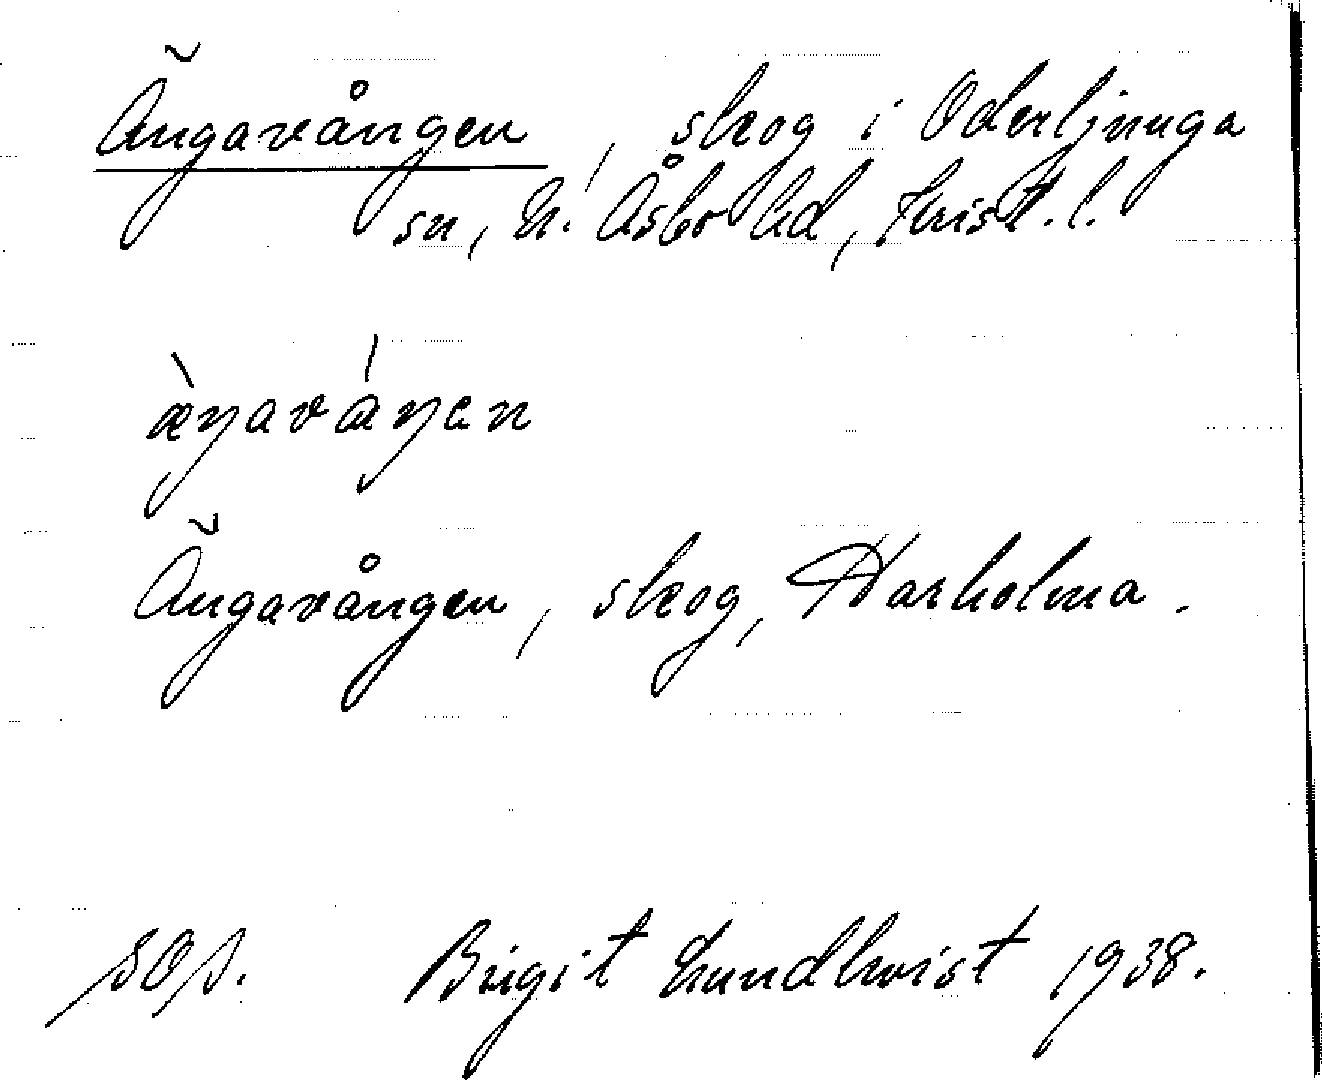 Ängavången, skog i Oderljunga
sn, N. Åsbo hd, Krist. l.
æŋaváŋen
Ängavången, skog, Harholma.
Birgit Lundkvist 1938.